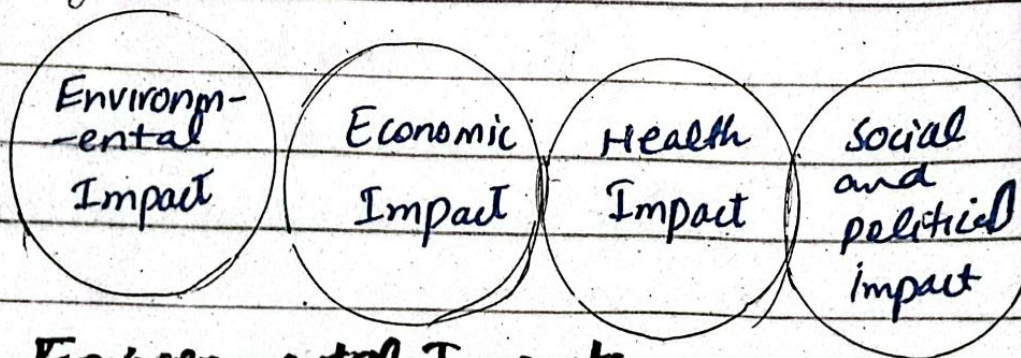 Environm-
-ental
Impact
Economic
Impact
Health
Impact
Social
and
political
impact